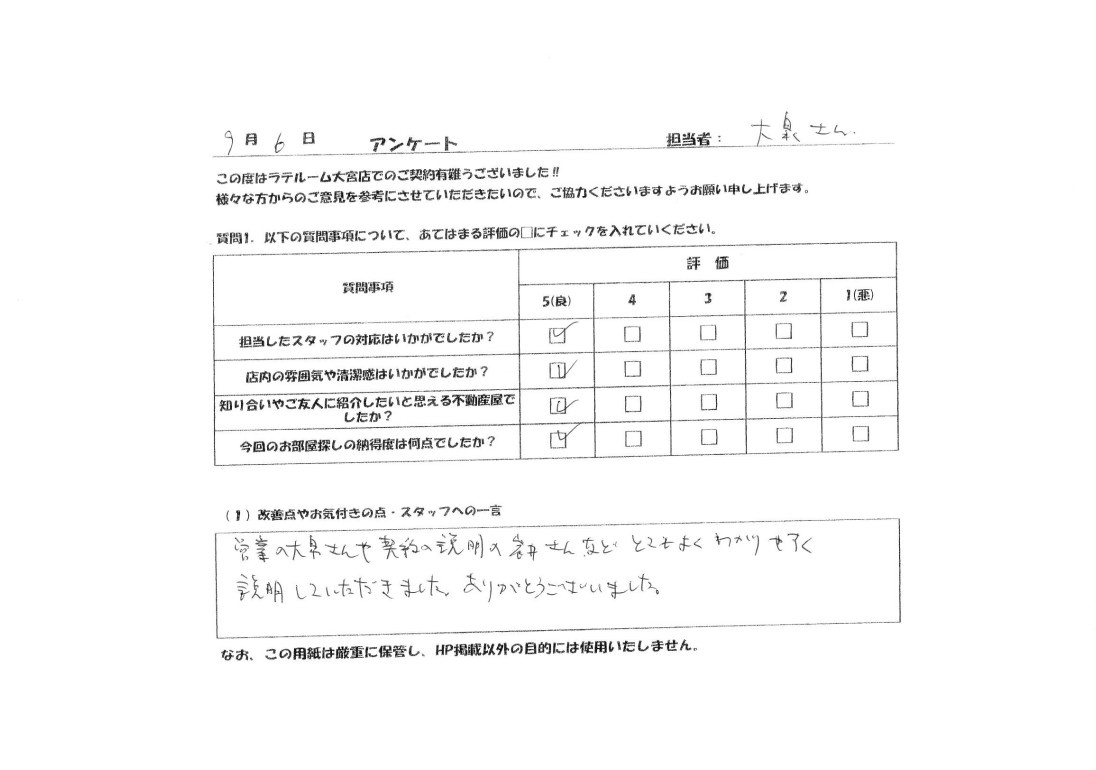 9月6日 アンケート 担当者： 大泉さん.
この度はラテルーム大宮店でのご契約有難うございました!!
様々な方からのご意見を参考にさせていただきたいので、ご協力くださいますようお願い申し上げます。
質問1. 以下の質問事項について、あてはまる評価の□にチェックを入れていください。
質問事項 評 価
5(良) 4 3 2 1(悪)
担当したスタッフの対応はいかがでしたか？
店内の雰囲気や清潔感はいかがでしたか？
知り合いやご友人に紹介したいと思える不動産屋で
したか？
今回のお部屋探しの納得度は何点でしたか？
(1)改善点やお気付きの点・スタッフへの一言
営業の大泉さんや契約の説明の さんなど とてもよく わかりやすく
説明していただきました。ありがとうございました。
なお、この用紙は厳重に保管し、HP掲載以外の目的には使用いたしません。